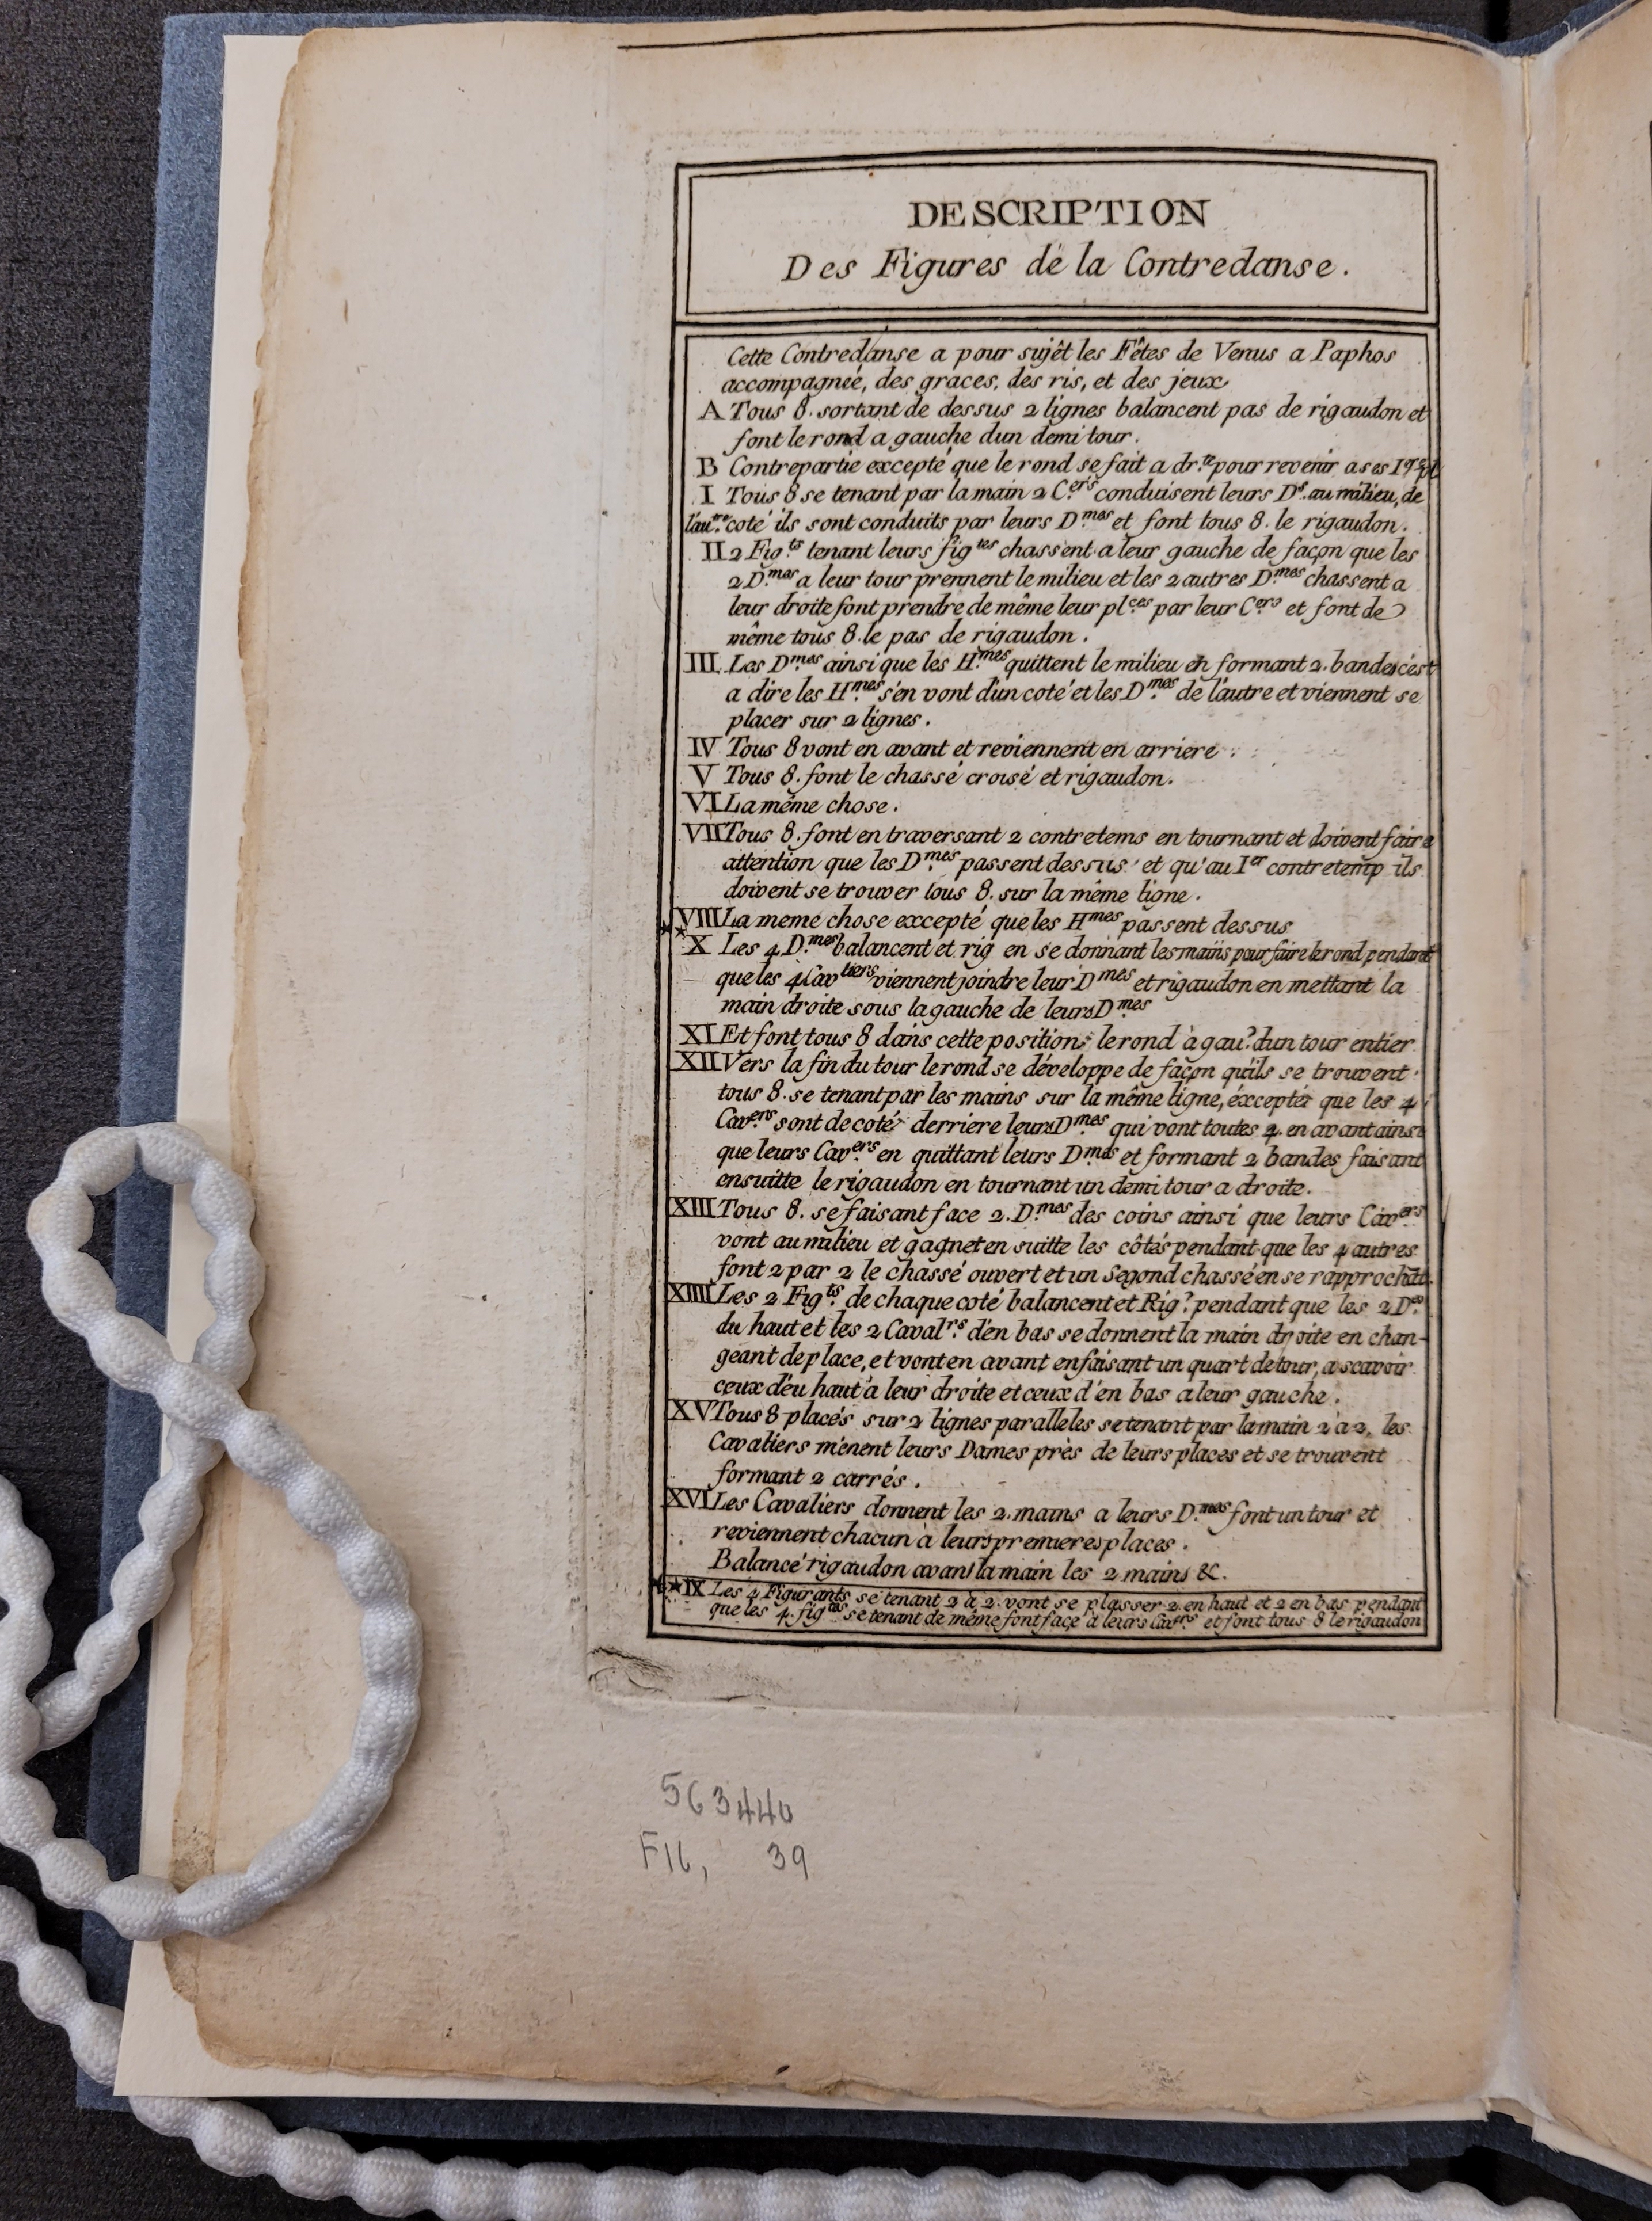 DESCRIPTION
Des Figures de la Contredanse.
Cette Contredanse a pour sujêt les Fêtes de Venus a Paphos
accompagneé, des graces, des ris, et des jeux.
A Tous 8. sortant de dessus 2 lignes balancent pas de rigaudon et
font le rond a gauche dun demi tour.
B Contrepartie excepté que le rond se fait a dr.te pour revenir a ses
I Tous 8 se tenant par la main 2 C.ers conduisent leurs D.s au milieu, de
l'au.tre coté ils sont conduits par leurs D.mes et font tous 8. le rigaudon.
II 2 Fig.ts tenant leurs fig.tes chassent a leur gauche de façon que les
2 D.mes a leur tour prennent le milieu et les 2 autres D.mes chassent a
leur droite font prendre de même leur pl.ces par leur C.ers et font de
même tous 8. le pas de rigaudon.
III. Les D.mes ainsi que les H.mes quittent le milieu en formant 2. bandes c'est
a dire les H.mes s'en vont d'un coté et les D.mes de l'autre et viennent se
placer sur 2 lignes.
IV Tous 8 vont en avant et reviennent en arriere.
V Tous 8. font le chassé croisé et rigaudon.
VI La même chose.
VII Tous 8. font en traversant 2 contretems en tournant et doivent faire
attention que les D.mes passent dessus et qu'au I.er contretemp ils
doivent se trouver tous 8. sur la même ligne.
VIII La meme chose excepté que les H.mes passent dessus
X Les 4 D.mes balancent et rig en se donnant les mains pour faire le rond pendant
que les 4 Cav.tiers viennent joindre leur D.mes et rigaudon en mettant la
main droite sous la gauche de leurs D.mes
XI Et font tous 8 dans cette position le rond à gau.? dun tour entier
XII Vers la fin du tour le rond se développe de façon qu'ils se trouvent
tous 8. se tenant par les mains sur la même ligne, éxceptér que les 4
Cav.ers sont de coté derriere leurs D.mes qui vont toutes 4. en avant ainsi
que leurs Cav.ers en quittant leurs D.mes et formant 2 bandes faisant
ensuitte le rigaudon en tournant un demi tour a droite.
XIII Tous 8. se faisant face 2. D.mes des coins ainsi que leurs Cav.ers
vont au milieu et gagnet en suitte les côtés pendant que les 4 autres
font 2 par 2 le chassé ouvert et un Segond chassé en se rapprochat.
XIIII Les 2 Fig.ts de chaque coté balancent et Rig.? pendant que les 2 D.es
du haut et les 2 Caval.rs d'en bas se donnent la main droite en chan-
geant de place, et vont en avant en faisant un quart de tour, a scavoir
ceux d'eu haut à leur droite et ceux d'en bas a leur gauche.
XV Tous 8 placés sur 2 lignes paralleles se tenant par la main 2 à 2, les
Cavaliers ménent leurs Dames près de leurs places et se trouvent
formant 2 carrés.
XVI Les Cavaliers donnent les 2. mains a leurs D.mes font un tour et
reviennent chacun à leurs premieres places.
Balancé rigaudon avant la main les 2 mains &c.
IX Les 4 Figurants se tenant 2 à 2. vont se plasser 2. en haut et 2 en bas pendant
que les 4. fig.tes se tenant de même font face à leurs Cav.ers et font tous 8 le rigaudon
563440
F16, 39